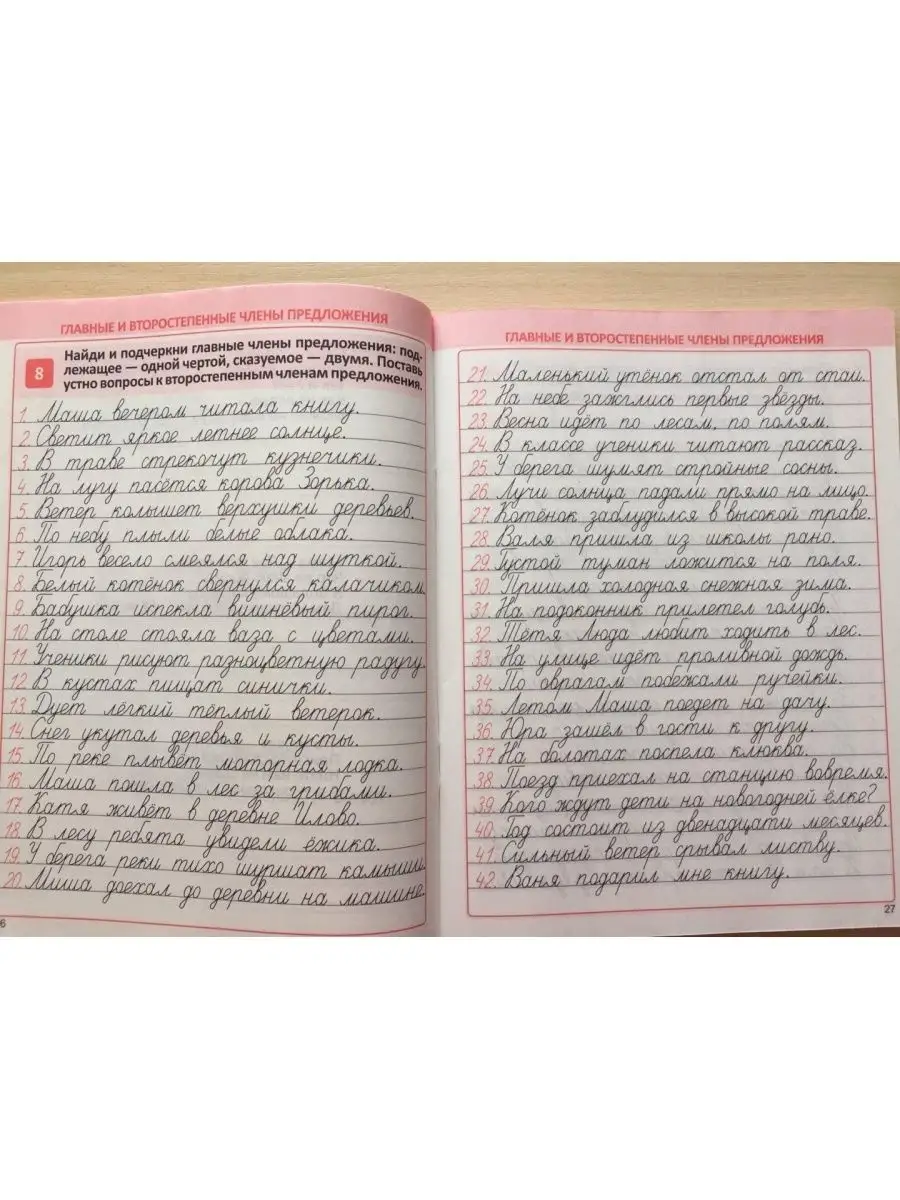 ГЛАВНЫЕ И ВТОРОСТЕПЕННЫЕ ЧЛЕНЫ ПРЕДЛОЖЕНИЯ
8
Найди и подчеркни главные члены предложения: под-
лежащее — одной чертой, сказуемое — двумя. Поставь
устно вопросы к второстепенным членам предложения.
1. Маша вечером читала книгу.
2. Светит яркое летнее солнце.
3. В траве стрекочут кузнечики.
4. На лугу пасётся корова Зорька.
5. Ветер колышет верхушки деревьев.
6. По небу плыли белые облака.
7. Игорь весело смеялся над шуткой.
8. Белый котёнок свернулся калачиком
9. Бабушка испекла вишнёвый пирог.
10. На столе стояла ваза с цветами.
11. Ученики рисуют разноцветную радугу.
12. В кустах пищат синички.
13. Дует лёгкий тёплый ветерок.
14. Снег укутал деревья и кусты.
15. По реке плывёт моторная лодка.
16. Маша пошла в лес за грибами.
17. Катя живёт в деревне Илово.
18. В лесу ребята увидели ёжика.
19. У берега реки тихо шуршат камыши
20. Миша доехал до деревни на машине.
6
ГЛАВНЫЕ И ВТОРОСТЕПЕННЫЕ ЧЛЕНЫ ПРЕДЛОЖЕНИЯ
21. Маленький утёнок отстал от стаи.
22. На небе зажглись первые звёзды.
23. Весна идёт по лесам, по полям.
24. В классе ученики читают рассказ.
25. У берега шумят стройные сосны.
26. Лучи солнца падали прямо на лицо.
27. Котёнок заблудился в высокой траве.
28. Валя пришла из школы рано.
29. Густой туман ложится на поля.
30. Пришла холодная снежная зима.
31. На подоконник прилетел голубь.
32. Тётя Люда любит ходить в лес.
33. На улице идёт проливной дождь.
34. По оврагам побежали ручейки.
35. Летом Маша поедет на дачу.
36. Юра зашёл в гости к другу.
37. На болотах поспела клюква.
38. Поезд приехал на станцию вовремя.
39. Кого ждут дети на новогодней ёлке?
40. Год состоит из двенадцати месяцев.
41. Сильный ветер срывал листву.
42. Ваня подарил мне книгу.
27